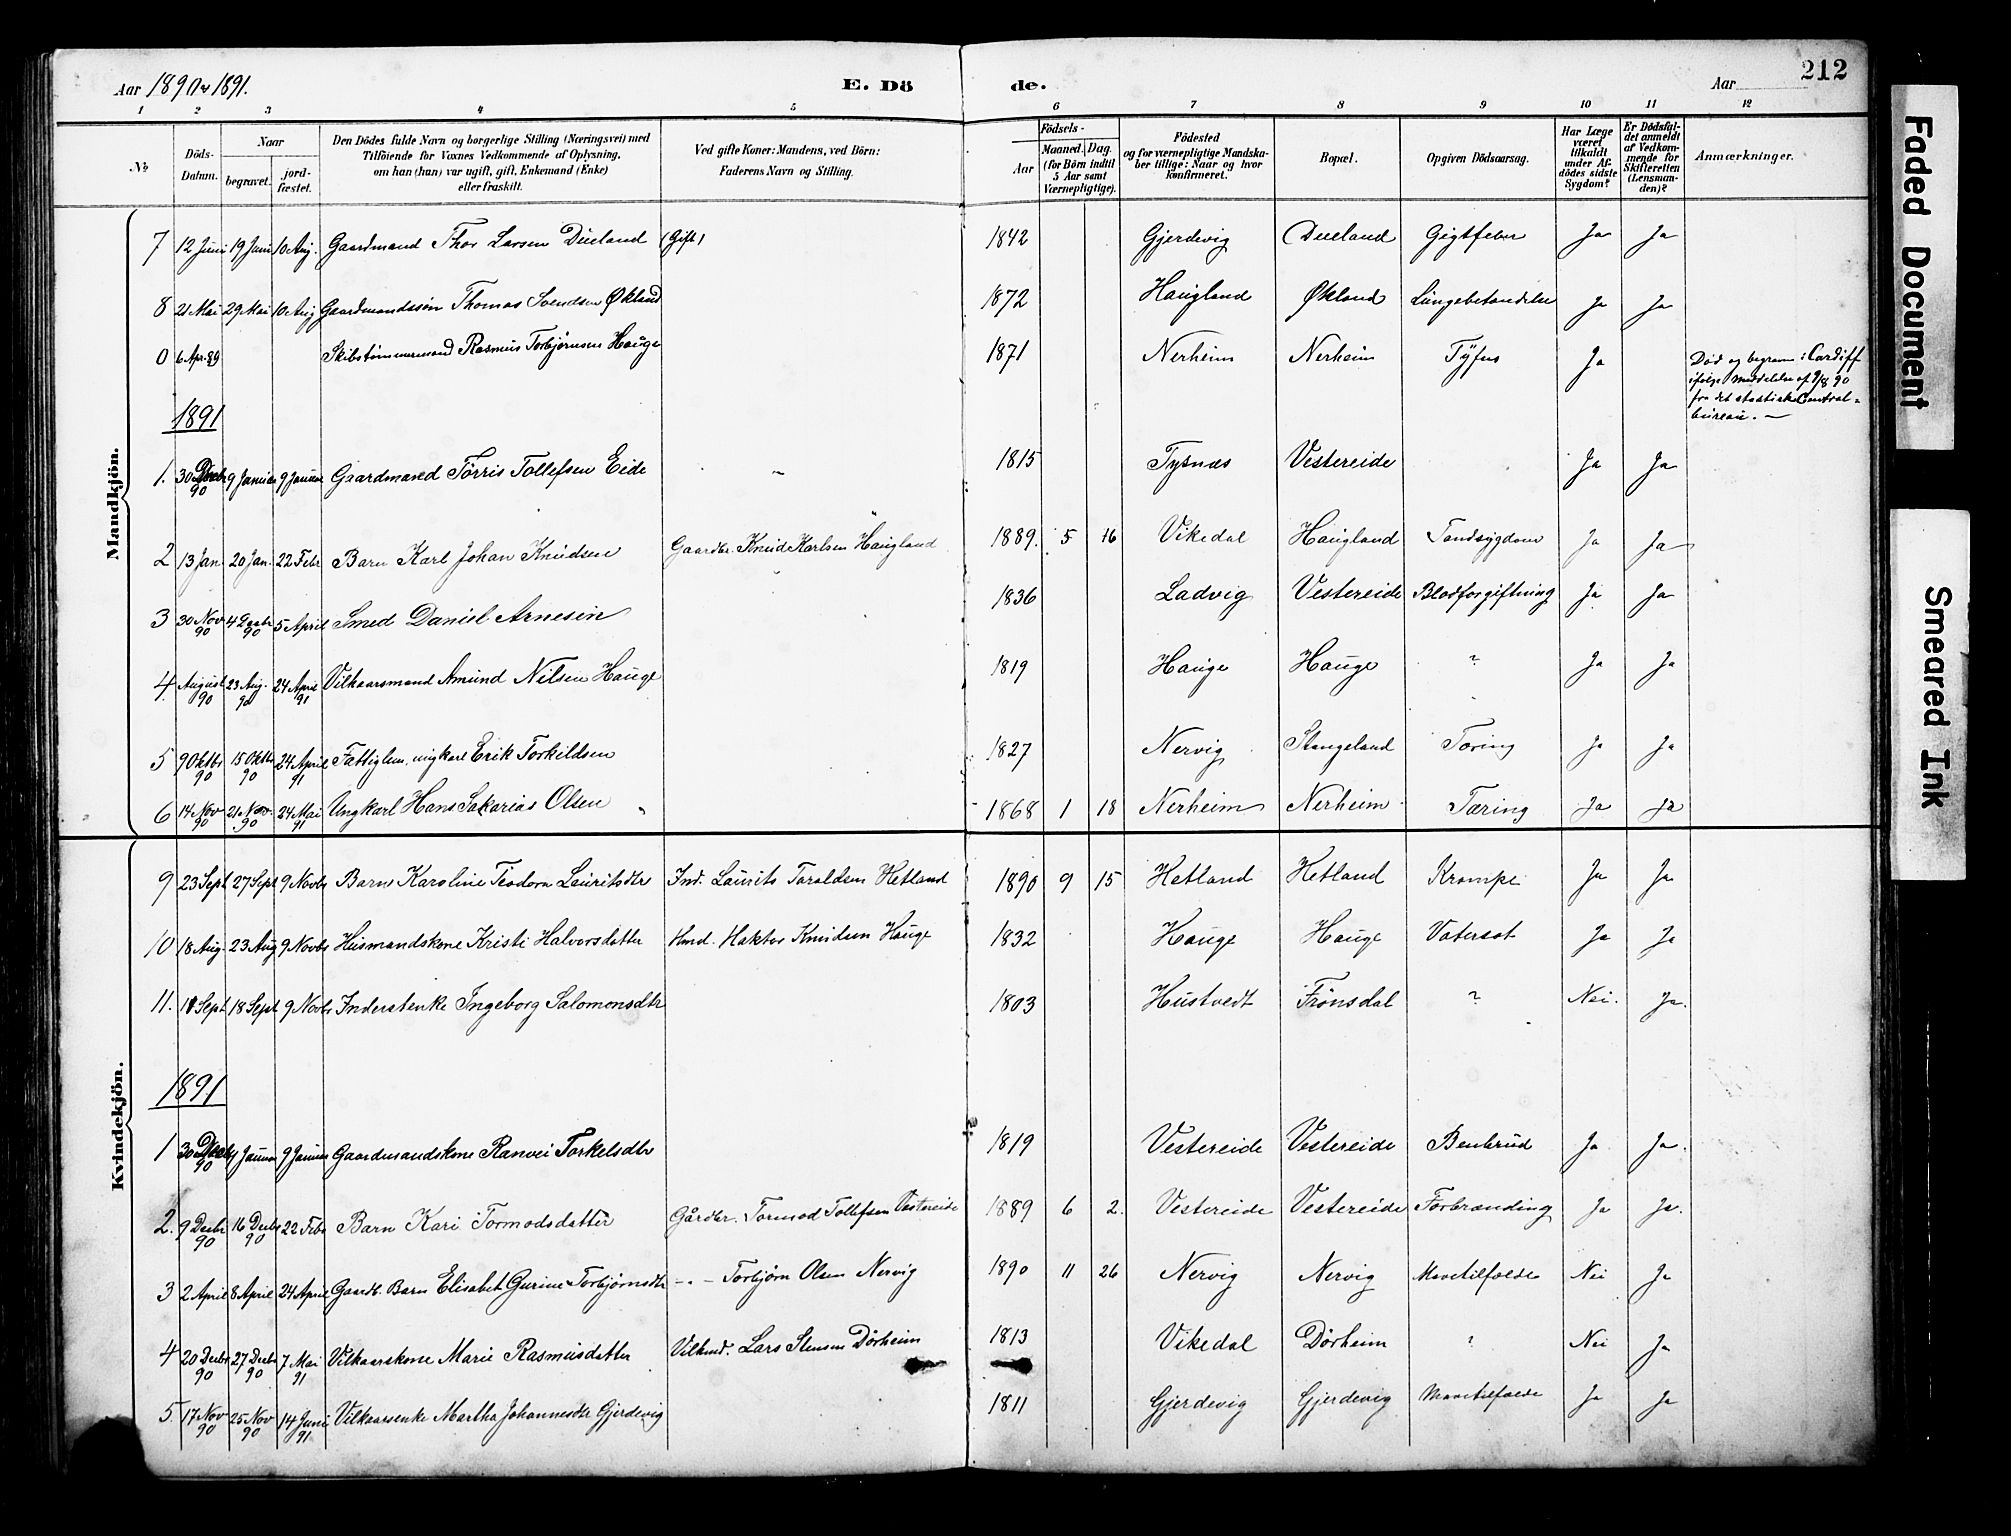 Aar 1890 & 1891. E. Dö de. Aar 212
1 2 3 4 5 6 7 8 9 10 11 12
No. Döds-Datum. Naar begravet. jord-fæstet. Den Dödes fulde Navn og borgerlige Stilling (Næringsvei) med Tilföiende for Voxnes Vedkommende af Oplysning, om han (hun) var ugift, gift, Enkemand (Enke) eller fraskilt. Ved gifte Koner: Mandens, ved Börn: Faderens Navn og Stilling. Födsels- Aar Maaned. Dag. (for Börn indtil 5 Aar samt Værnepligtige). Födested og for værnepligtige Mandska-ber tillige: Naar og hvor konfirmeret. Bopæl. Opgiven Dödsaarsag. Har Læge været tilkaldt under Af-dödes sidste Sygdom? Er Dödsfal-det anmeldt af Vedkom-mende for Skifteretten (Lensman-den)? Anmærkninger.
Mandkjön.
7 12 Juni 19 Juni 10 Aug. Gaardmand Thor Larsen Dueland (Gift) 1842 Gjerdevig Dueland Gigtfeber Ja Ja
8 21 Mai 29 Mai 10 Aug Gaardmandssøn Thomas Svendsen Økland 1872 Haugland Økland Lungebetændelse Ja Ja
0 6 Apr. 89 Skibstømmermand Rasmus Torbjørnsen Hauge 1871 Nerheim Nerheim Tyfus Ja Død og begraven i Cardiff
ifølge Meddelelse af 9/8 90
fra det statistiske Central-
bureau. —
1891
1. 30 Decbr 90 9 Januar 9 Januar Gaardmand Tørris Tollefsen Eide 1815 Tysnæs Vestereide Ja Ja
2 13 Jan. 20 Jan. 22 Febr Barn Karl Johan Knudsen Gaardbr. Knud Karlsen Haugland 1889. 5 16 Vikedal Haugland Tandsygdom Ja Ja
3 30 Nov 90 4 Decbr 90 5 April Smed Daniel Arnesen 1836 Ladvig Vestereide Blodforgiftning Ja Ja
4. August 90 23 Aug. 90 24 April 91 Vilkaarsmand Amund Nilsen Hauge 1819 Hauge Hauge ? Ja Ja
5 9 Oktbr 90 15 Oktbr 90 24 April 91 Fattiglem, ungkarl Erik Torkildsen 1827 Nervig Stangeland Tæring Ja Ja
6 14 Nov 90 21 Nov. 90 24 Mai 91 Ungkarl Hans Sakarias Olsen 1868 1 18 Nerheim Nerheim Tæring Ja Ja
Kvindekjön.
9 23 Sept 27 Sept 9 Novbr Barn Karoline Teodora Lauritsdtr Ind. Laurits Taraldsen Hetland 1890 9 15 Hetland Hetland Krampe Ja Ja
10 18 Aug. 23 Aug 9 Novbr Husmandskone Kristi Halvorsdatter Hmd. Haktor Knudsen Hauge 1832 Hauge Hauge Vatersot Ja Ja
11. 11 Sept 18 Sept 9 Novbr Inderstenke Ingeborg Salomonsdtr 1803 Hustvedt Frönsdal ? Nei. Ja.
1891
1 30 Decbr 90 9 Januar 9 Januar Gaardmandskone Ranvei Torkelsdtr 1819 Vestereide Vestereide Benbrud Ja Ja.
2. 9 Decbr 90 16 Decbr 90 22 Febr Barn Kari Tormodsdatter Gårdbr. Tormod Tollefsen Vestereide 1889 6 2. Vestereide Vestereide Forbrænding Ja Ja.
3 2 April 8 April 24 April Gaardb. Barn Elisabet Gurine Torbjørnsdtr -"- Torbjørn Olsen Nervig 1890 11 26 Nervig Nervig Mavetilfælde Nei Ja
4 20 Decbr 90 27 Decbr 90 7 Mai 91 Vilkaarskone Marie Rasmusdatter Vilkmd. Lars Stensen Dörheim 1813 Vikedal Dörheim ? Nei Ja
5. 17 Nov 90 25 Nov 90 14 Juni 91 Vilkaarsenke Martha Johannesdtr Gjerdevig 1811 Gjerdevig Gjerdevig Mavetilfælde Ja Ja
Faded Document
Smeared Ink